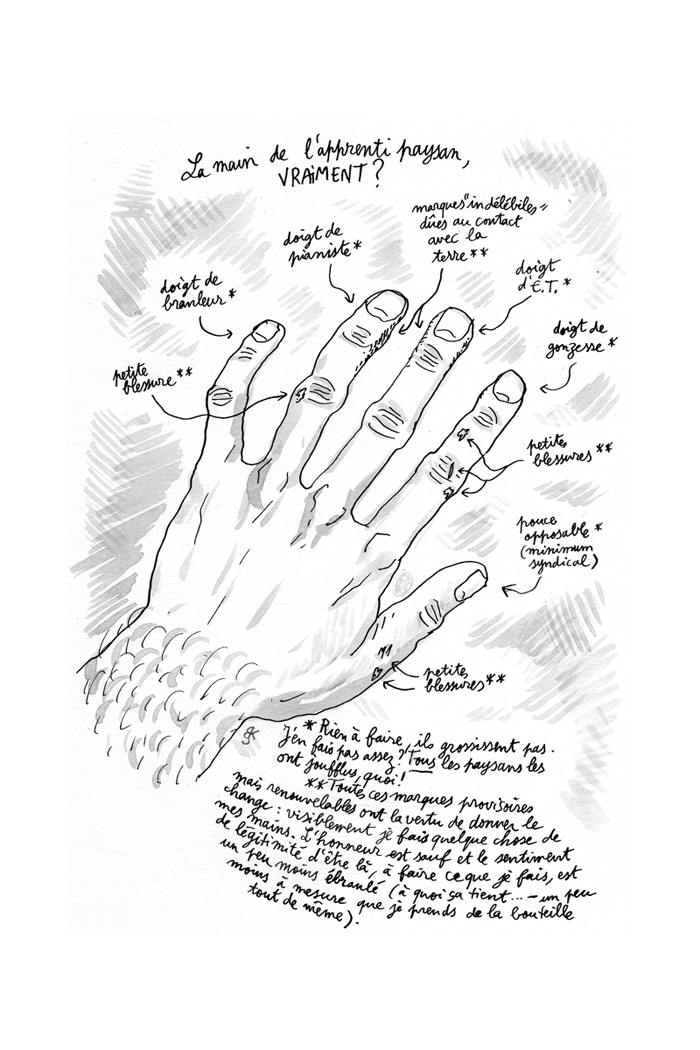 La main de l'apprenti paysan,
VRAiMENT?
doigt de
branleur*
doigt de
pianiste*
marques "indélébiles"
dûes au contact
avec la
terre**
doigt
d'E.T.*
doigt de
gonzesse*
petite
blessure**
petites
blessures**
pouce
opposable*
(minimum
syndical)
petites
blessures**
gK
* Rien à faire, ils grossissent pas.
J'en fais pas assez? Tous les paysans les
ont joufflus, quoi!
** Toutes ces marques provisoires
mais renouvelables ont la vertu de donner le
change : visiblement je fais quelque chose de
mes mains. L'honneur est sauf et le sentiment
de légitimité d'être là, à faire ce que je fais, est
un peu moins ébranlé (à quoi ça tient... - un peu
moins à mesure que je prends de la bouteille
tout de même).